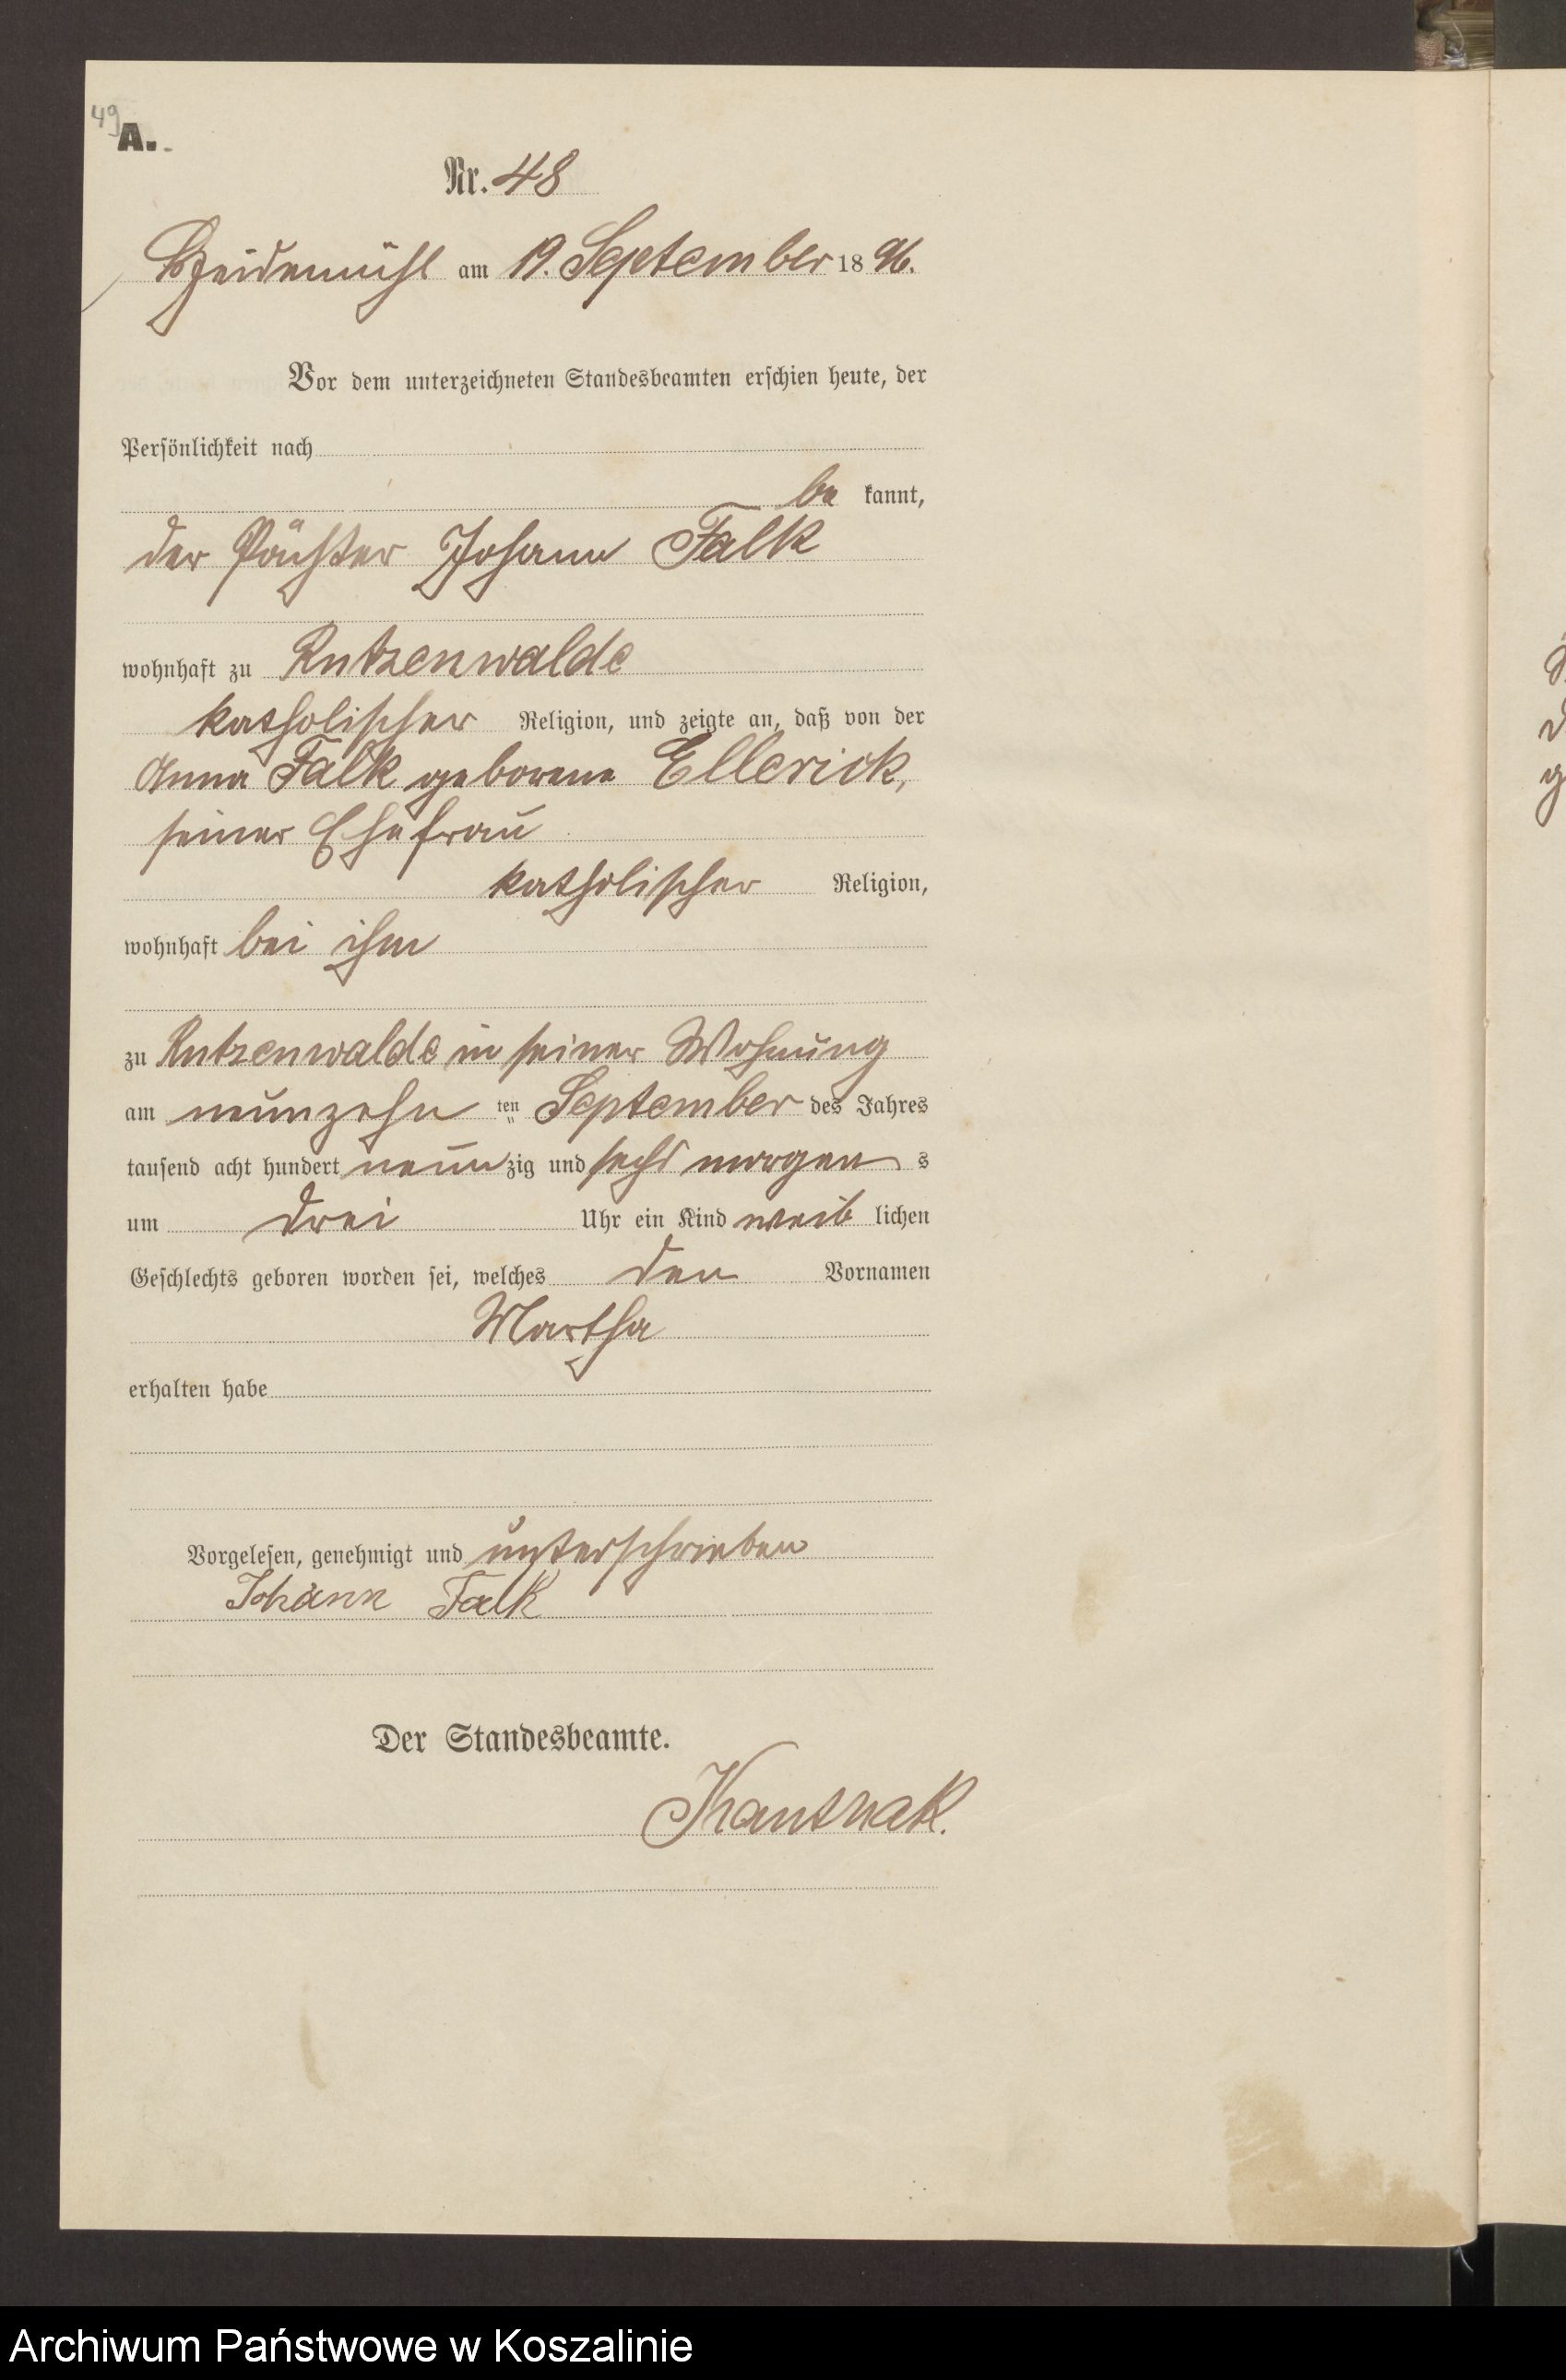 49
A.
Nr. 48
Heidemühl am 19. September 1896.
Vor dem unterzeichneten Standesbeamten erschien heute, der
Persönlichkeit nach
be kannt,
der Pächter Johann Falk
wohnhaft zu Rutzenwalde
katholischer Religion, und zeigte an, daß von der
Anna Falk geborene Ellerick,
seiner Ehefrau
katholischer Religion,
wohnhaft bei ihm
zu Rutzenwalde in seiner Wohnung
am neunzehn ten September des Jahres
tausend acht hundert neun zig und sechs morgen s
um drei Uhr ein Kind weib lichen
Geschlechts geboren worden sei, welches den Vornamen
Martha
erhalten habe
Vorgelesen, genehmigt und unterschrieben
Johann Falk
Der Standesbeamte.
Archiwum Państwowe w Koszalinie